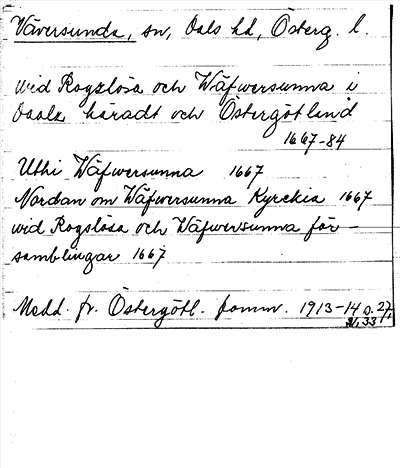 Väversunda, sn, Dals hd, Österg. l.
wid Rogslösa och Wäfwersunna i
Daals häradt och Östergötland
1667-84
Uthi Wäfwersunna 1667
Nordan om Wäfwersunna Kyrckia 1667
wid Rogslösa och Wäfwersunna för-
samblingar 1667
Medd. fr. Östergötl. fornm. 1913-14 o. 27/1
s. 33